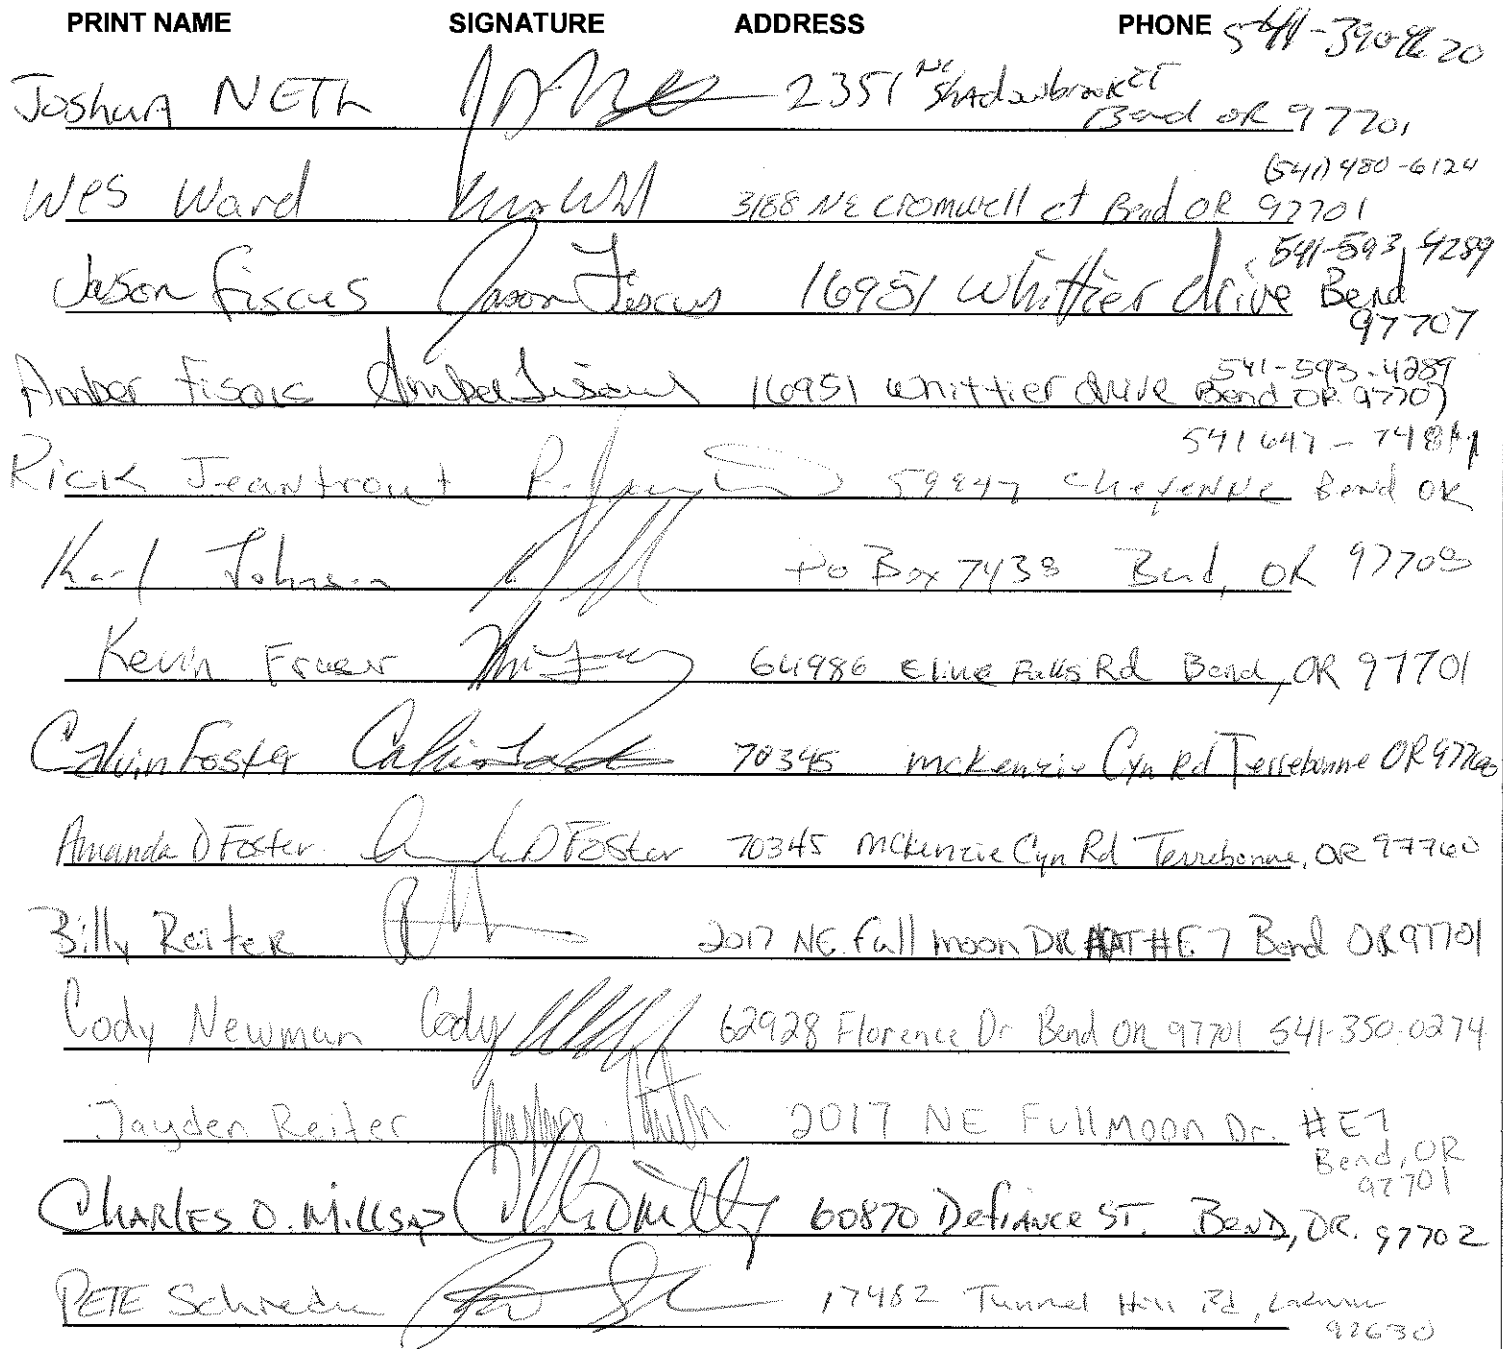 PRINT NAME SIGNATURE ADDRESS PHONE
Joshua NETh 2351 NE Shadowbrook CT Bend OR 97701
Wes Ward 3188 NE Cromwell ct Bend OR 97701 (541) 480-6124
Jason Fiscus Jason Fiscus 16951 Whittier drive Bend 97707 541-593-4289
Amber Fiscus Amber Fiscus 16951 Whittier drive Bend OR 97707 541-593-4289
Rick Jeantrout Cheyenne Bend OR
Karl Johnson PO Box 7438 Bend, OR 97708
Kevin 64986 Falls Rd Bend, OR 97701
Calvin Foster 70345 McKenzie Cyn Rd Terrebonne OR 97760
Amanda D Foster D Foster 70345 McKenzie Cyn Rd Terrebonne, OR 97760
Billy Reiter 2017 NE. Full moon DR #E7 Bend OR 97701
Cody Newman Cody 62928 Florence Dr Bend OR 97701 541-350-0274
Jayden Reiter 2017 NE Full Moon Dr. #E7
Bend, OR
97701
CHARLES O. MILLSAP 60870 Defiance ST. BEND, OR. 97702
PETE 17482 Tunnel Hill Rd,